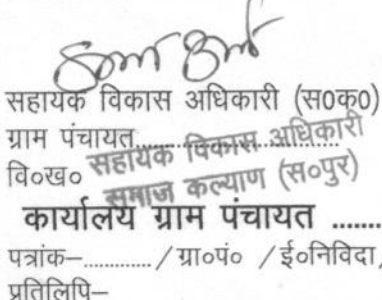 सहायक विकास अधिकारी (स0क0)
ग्राम पंचायत....................
सहायक विकास अधिकारी
वि०ख०
समाज कल्याण (स०पुर)
कार्यालय ग्राम पंचायत .......
पत्रांक–............/ग्रा०पं० /ई०निविदा/
प्रतिलिपि–